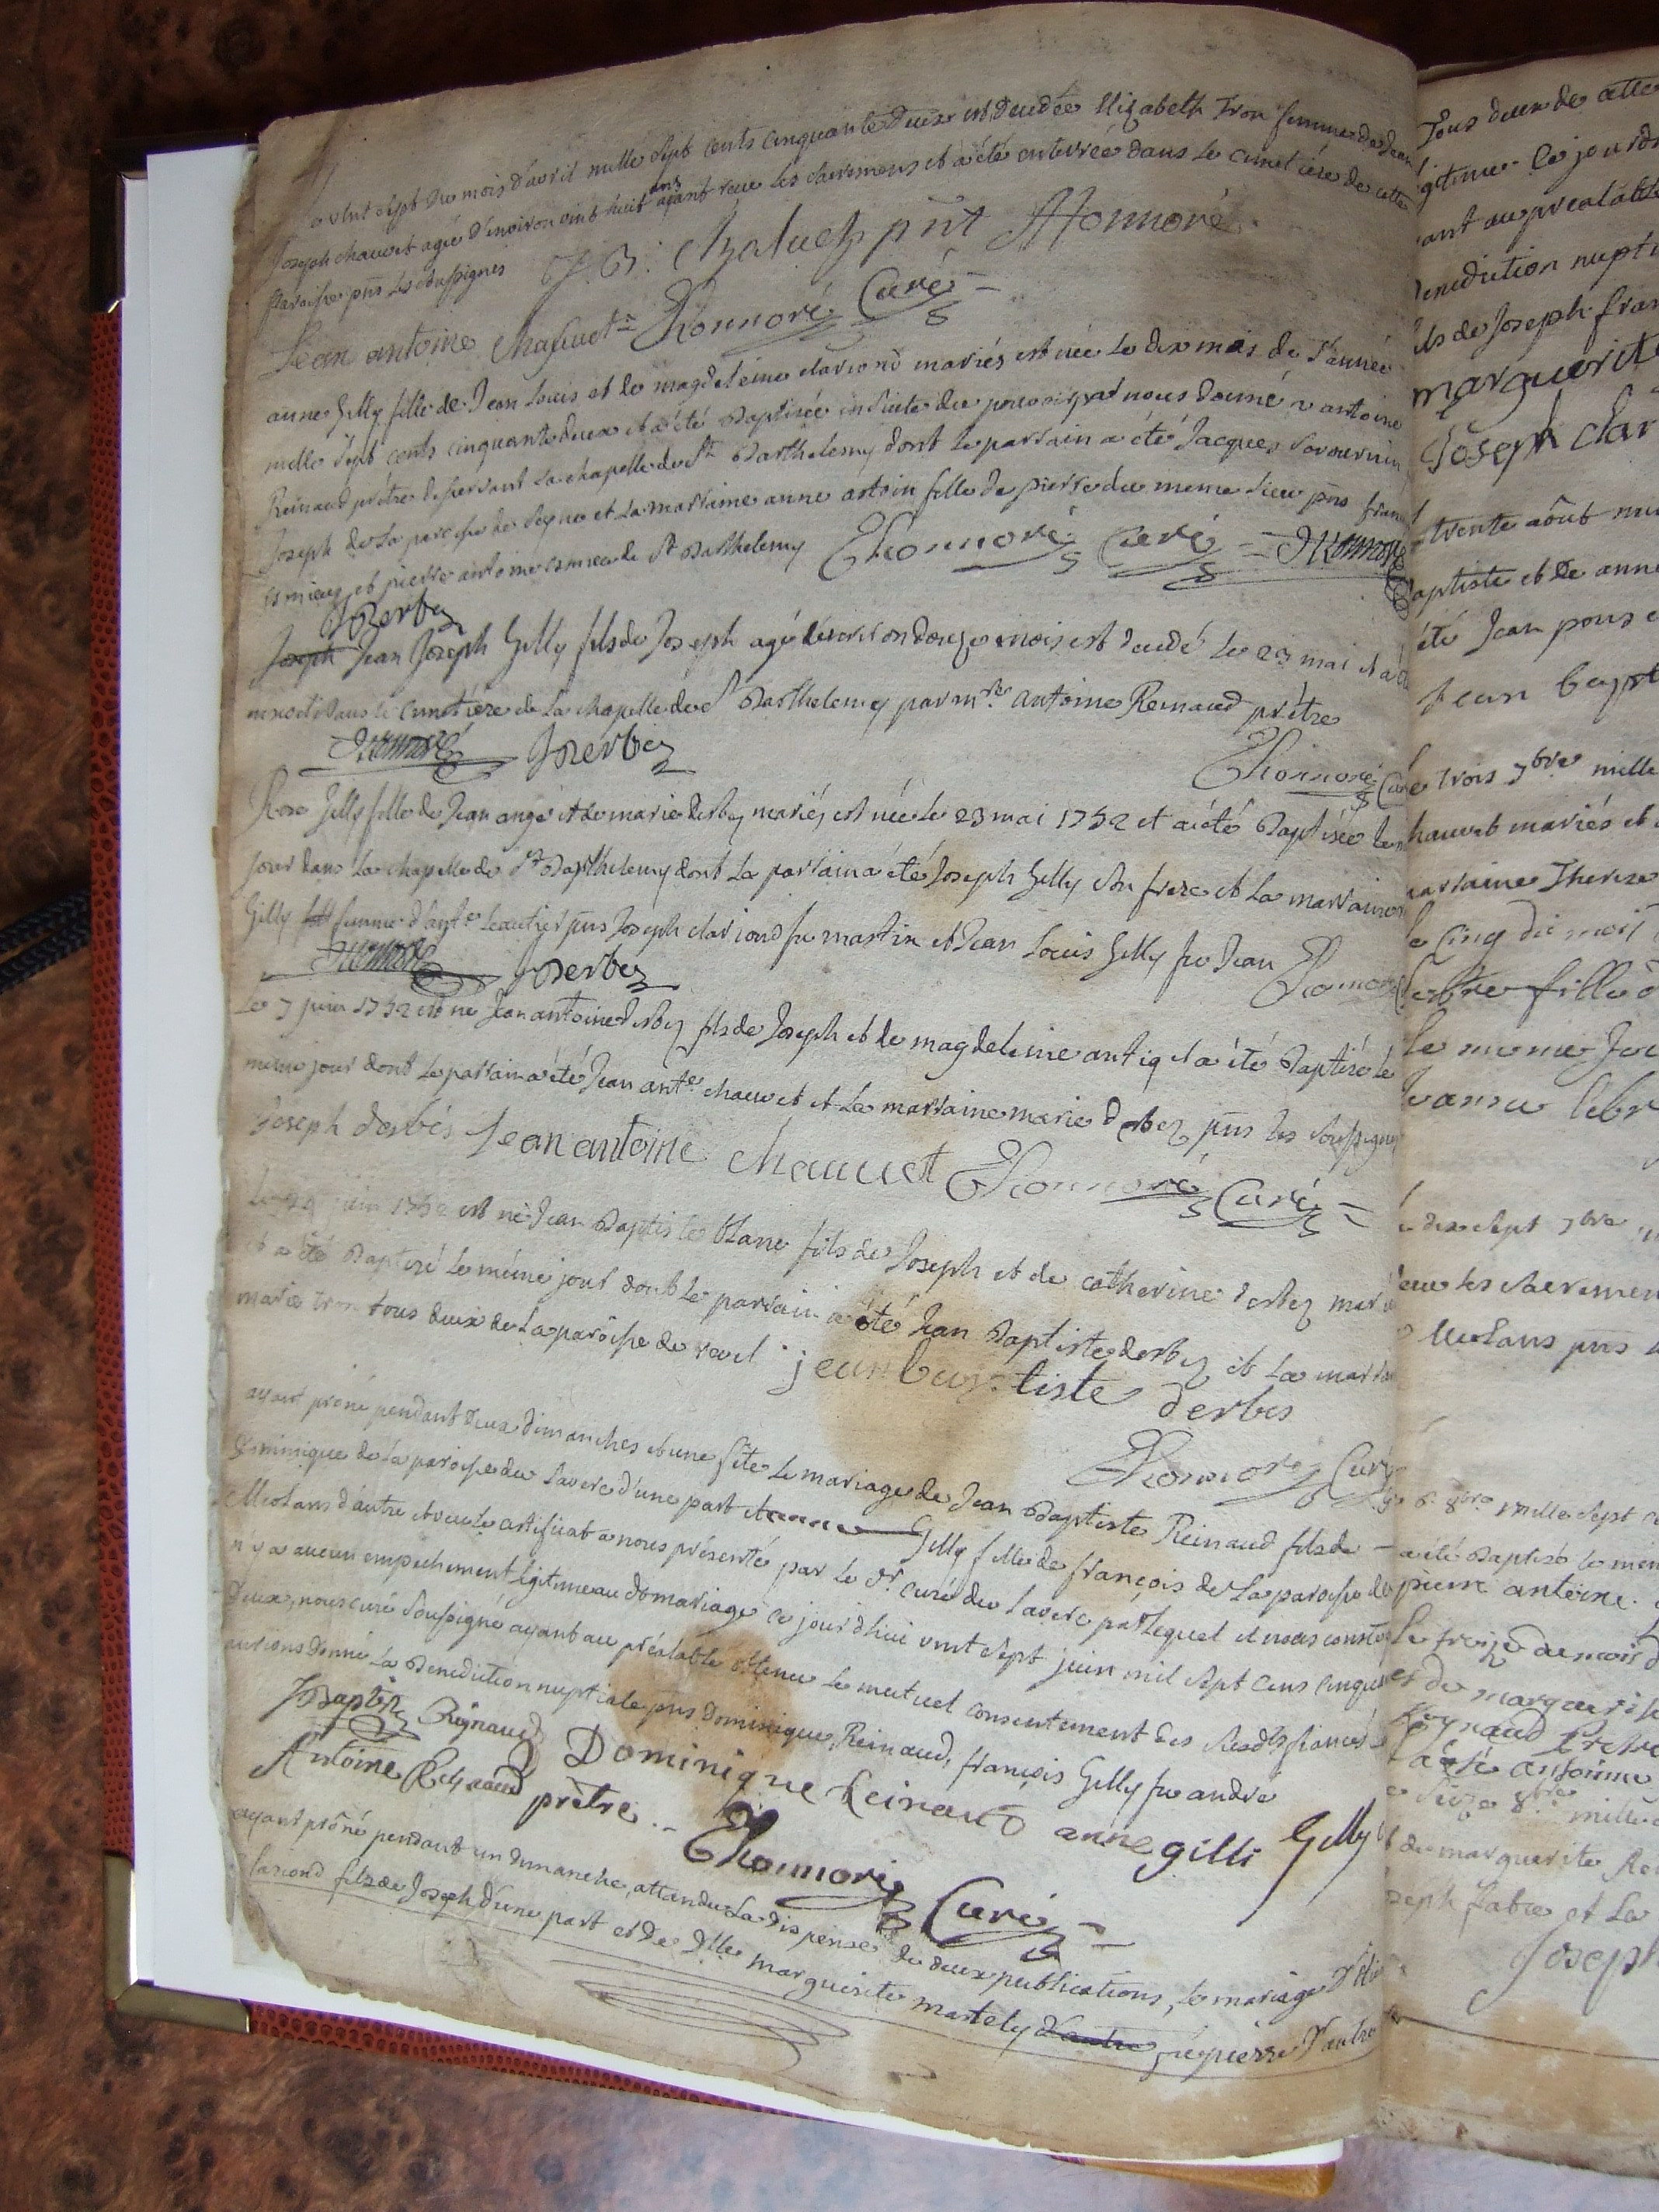 vint sept du mois d'avril mille sept cents cinquante deux est decedée Elizabeth Tron femme de Jean
Joseph chauvet agée d'environ vint huit ans ayant receu les sacremens et a été enterrée dans le cimetière de cette
paroisse pns les soussignés J. B. Chaluet pnt Honnoré
Jean antoine chauvet Honnoré Curé
anne Gilly fille de Jean Louis et de magdeleine clariond mariés est née le dix mai de l'année
mille sept cents cinquante deux et a été Baptisée en suite du pouvoir par nous donné a antoine
Reinaud prêtre desservant la chapelle de St Barthelemy dont le parrain a été Jacques Savournin
Joseph de la paroisse de Seyne et la marraine anne astoin fille de pierre du meme lieu pns
et pierre antoine de St Barthelemy Honnoré Curé Honnoré
J Derbez
Joseph Jean Joseph Gilly fils de Joseph agé d'environ douze mois est decedé le 23 mai et a été
dans le cimetière de la chapelle de St Barthelemy par mre antoine Reinaud prêtre
Honnoré J Derbez Honnoré Curé
Rose Gilly fille de Jean ange et de marie derbez mariés est née le 23 mai 1752 et a été Baptisée le
jour dans la chapelle de St Barthelemy dont le parrain a été Joseph Gilly son frere et la marraine
Gilly femme d'ante Leautier pns Joseph clariond fu martin et Jean Louis Gilly fu Jean
Honnoré J Derbez Honnoré
Le 7 juin 1752 est né Jean antoine derbez fils de Joseph et de magdeleine antiq et a été Baptisé le
meme jour dont le parrain a été Jean ante chauvet et la marraine marie derbez pns les soussignés
Joseph derbés Jean antoine chauvet Honnoré Curé
Le juin 1752 est né Jean Baptiste Blanc fils de Joseph et de catherine derbez mariés
et a été Baptisé le même jour dont le parrain a été Jean Baptiste derbez et la marraine
marie tron tous deux de la paroisse de revel jean baptiste derbes
Honnoré Curé
ayant prôné pendant deux dimanches et une fête le mariage de Jean Baptiste Reinaud fils de
Dominique de la paroisse du Lavere d'une part et Gilly fille de françois de la paroisse de
Meolans d'autre et veu le certificat a nous présenté par le Sr curé du Lavere par lequel il nous conste
n'y a aucun empechement legitime au d mariage ce jourdhui vint sept juin mil sept cens cinquante
deux, nous curé soussigné ayant au préalable obtenu le mutuel consentement des susdts fiancés
aurions donné la Benediction nuptiale pns Dominique Reinaud, françois Gilly fu andré
J Baptiste Reignaud Dominique Reinaud anne gilli Gilly
Antoine Reynaud prètre Honnoré Curé
ayant prôné pendant un dimanche, attendu la dispense de deux publications, le mariage
clariond fils de Joseph d'une part et de Dlle marguerite martely d'autre fu pierre d'autre
Tous deux de cette
legitime ce jourd
ayant au prealable
benediction nupti
fils de Joseph fran
marguerite
Joseph clar
trente août mil
Baptiste et de anne
été Jean pons
Jean bapt
Le trois 7bre mille
chauvet mariés et
marraine Therese
le cinq du mois
fille d
Le meme Jou
le dix sept 7bre
receu les sacremen
Meolans pns
6 8bre mille sept
a été Baptisé le mem
pierre antoine
Le treize du mois d
et de marguerite
Reynaud Pretre
a été antoine
8bre mille
et de marguerite Re
Joseph fabre et La
Joseph